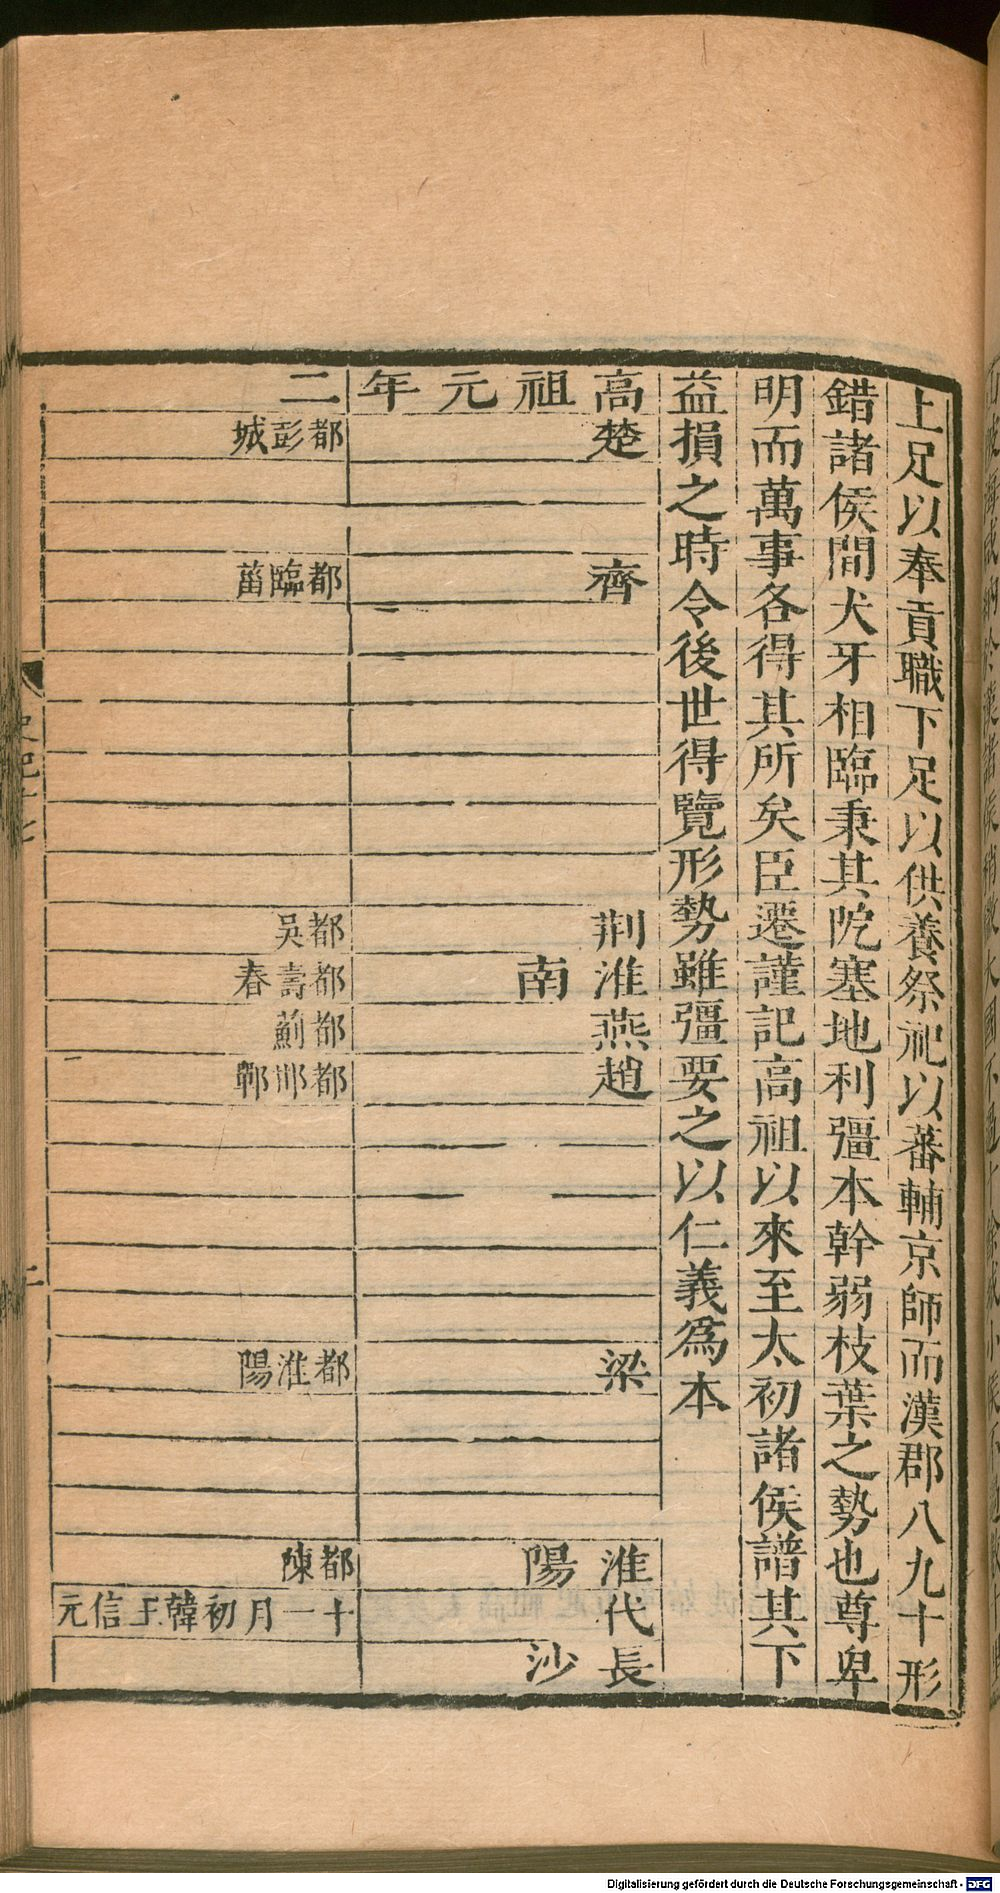 上足以奉貢職下足以供養祭祀以蕃輔京師而漢郡八九十形
錯諸侯間犬牙相臨秉其阸塞地利彊本幹弱枝葉之勢也尊卑
明而萬事各得其所矣臣遷謹記高祖以來至太初諸侯譜其下
益損之時令後世得覽形勢雖彊要之以仁義爲本
高祖元年
二
楚
都彭城
齊
都臨菑
荆
都吳
淮南
都壽春
燕
都薊
趙
都邯鄲
梁
都淮陽
淮陽
都陳
代
十一月初韓王信元
長沙
Digitalisierung gefördert durch die Deutsche Forschungsgemeinschaft - DFG